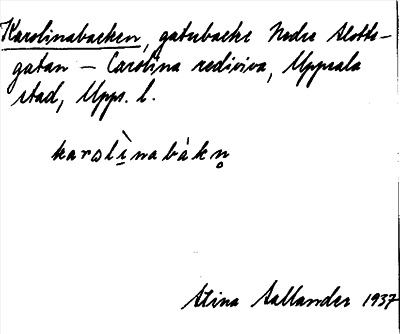 Karolinabacken, gatubacke Nedre Slotts-
gatan – Carolina rediviva, Uppsala
stad, Upps. l.
karolìnabákn̥
Stina Sallander 1937